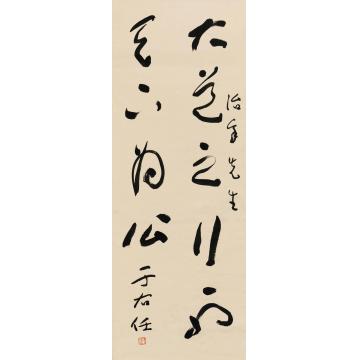 大道之行也
先生
天下為公
于右任